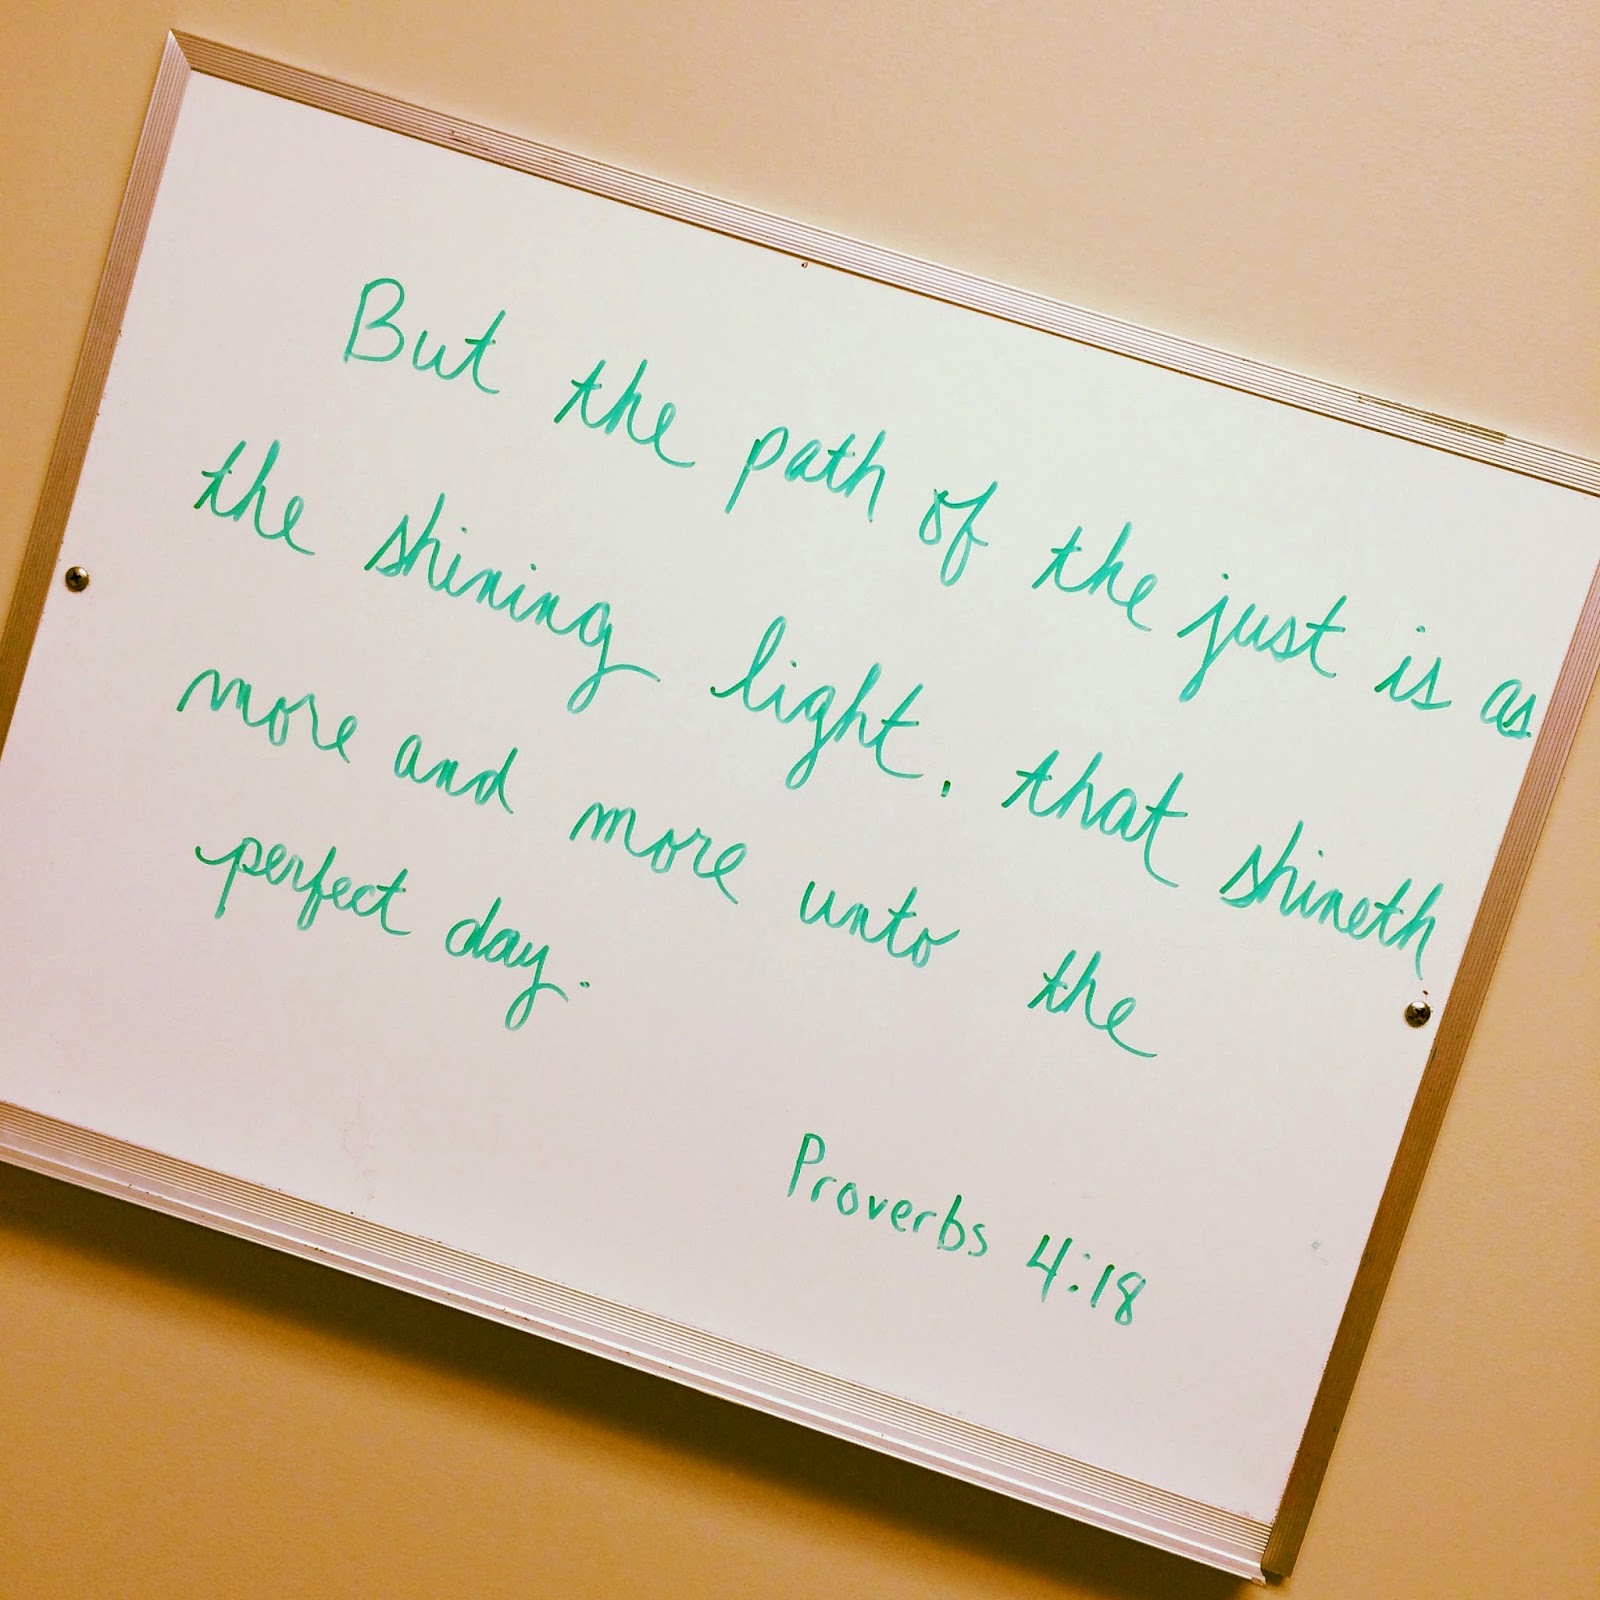 But the path of the just is as
the shining light, that shineth
more and more unto the
perfect day.
Proverbs 4:18